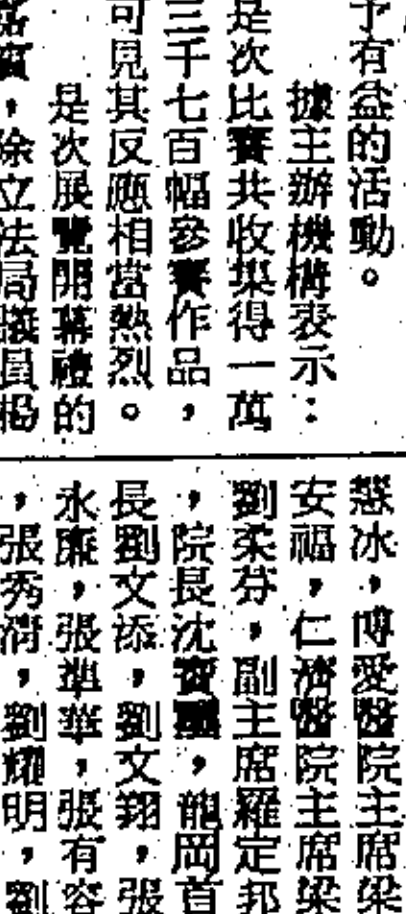 予有益的活動。
據主辦機構表示：
是次比賽共收集得一萬
三千七百幅參賽作品，
可見其反應相當熱烈。
是次展覽開幕禮的
嘉賓，除立法局議員楊
慧冰，博愛醫院主席梁
安福，仁濟醫院主席梁
劉柔芬，副主席羅定邦
，院長沈，龍岡首
長劉文添，劉文翔，張
永廉，張準華，張有容
，張秀清，劉耀明，劉